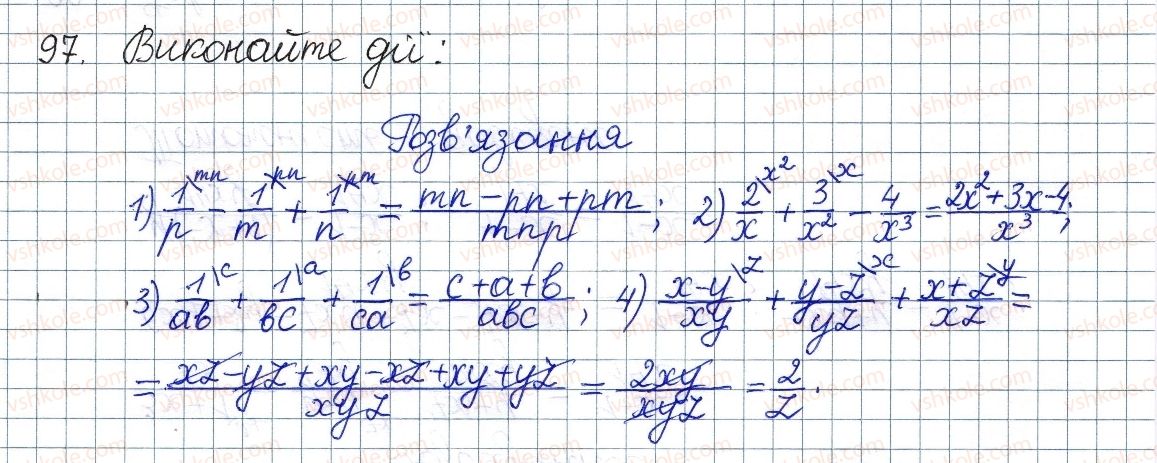 97. Виконайте дії:
Розв'язання
1) 1/p \mn - 1/m \pn + 1/n \pm = (mn - pn + pm)/(mnp); 2) 2/x \x² + 3/x² \x - 4/x³ = (2x² + 3x - 4)/x³;
3) 1/ab \c + 1/bc \a + 1/ca \b = (c + a + b)/(abc); 4) (x - y)/(xy) \z + (y - z)/(yz) \x + (x + z)/(xz) \y =
= (xz - yz + xy - xz + xy + yz)/(xyz) = 2xy/(xyz) = 2/z.